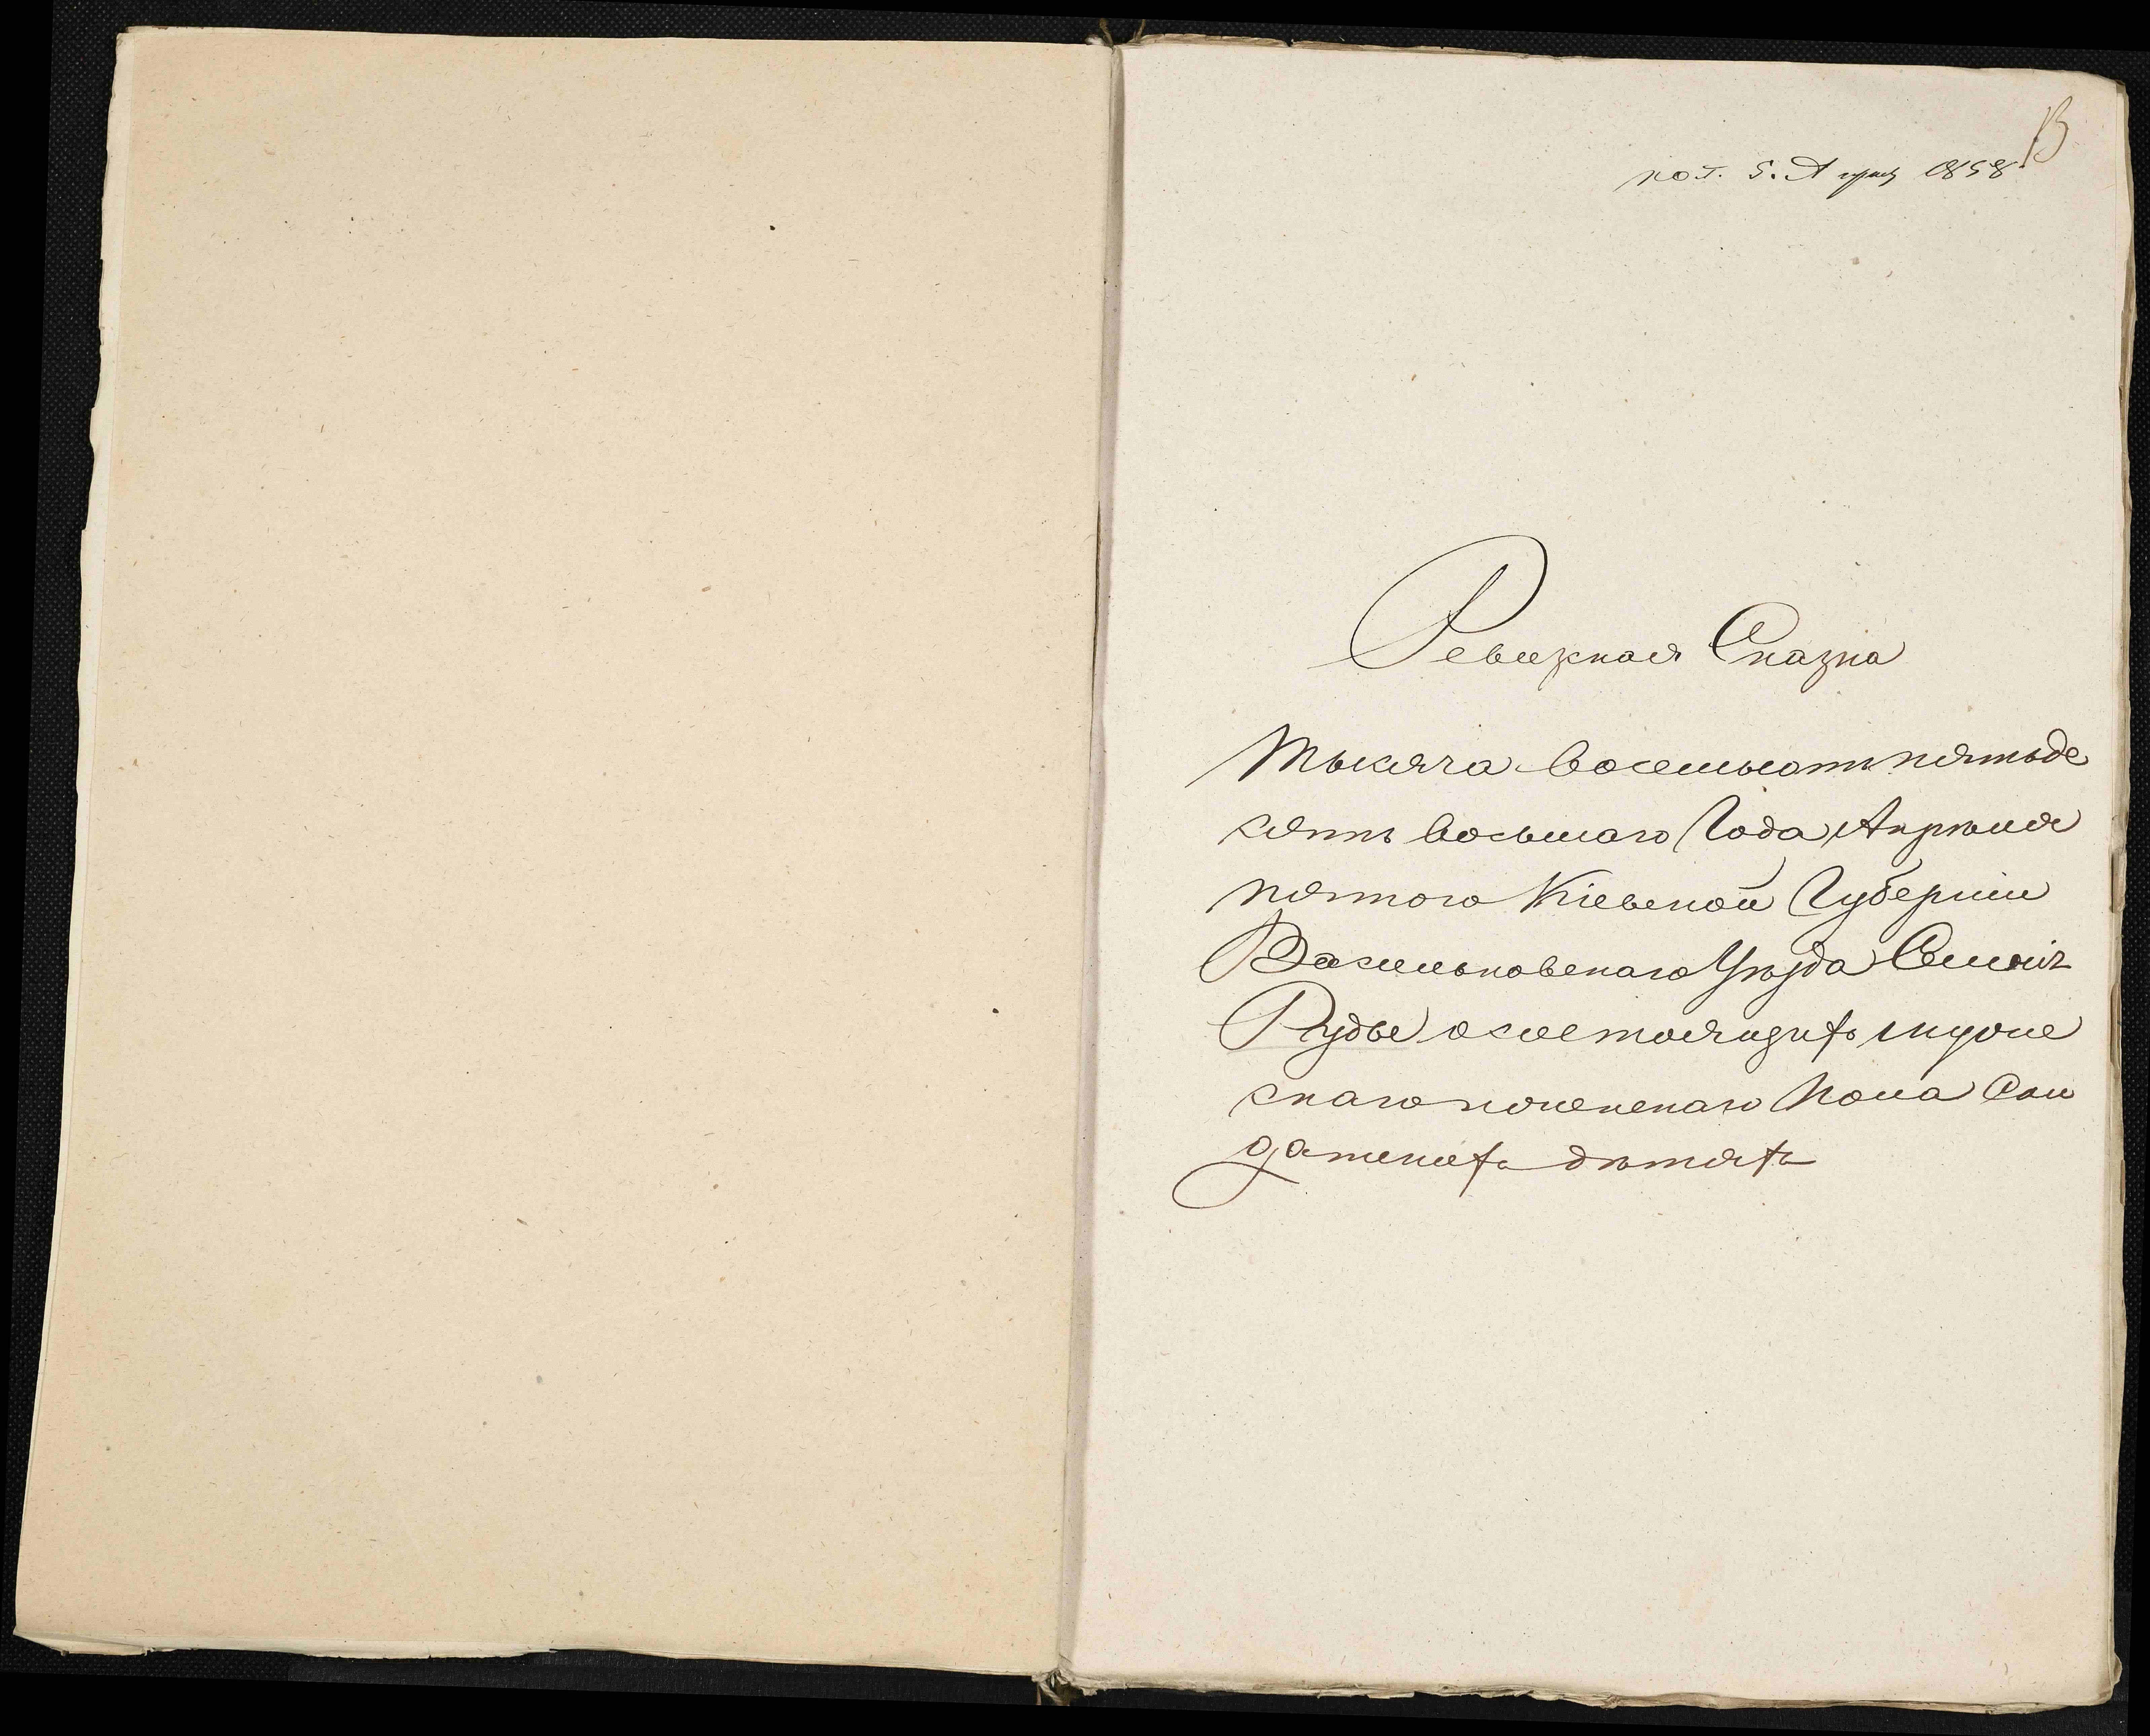 пол. 5. Апреля 1858
Ревизкая Сказка
Тысяча восемьсотъ пятьде
сятъ восьмаго Года Апреля
пятого Кіевской Губерніи
Васильковскаго Уѣзда
Рудые о состоящихъ мужe
скаго и женскаго Пола Сол
датскихъ дѣтяхъ